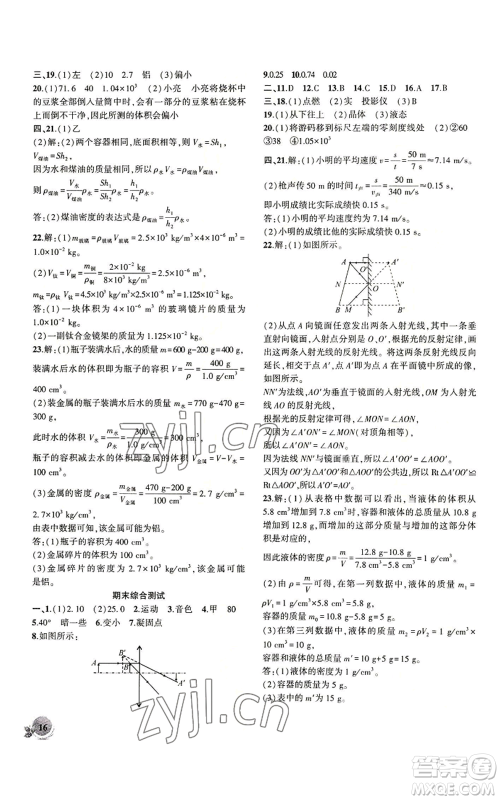 三、19.(1)左 (2)10 2.7 铝 (3)偏小
20.(1)71.6 40 1.04×10³ (2)小亮 小亮将烧杯中的豆浆全部倒入量筒中时,会有一部分的豆浆粘在烧杯上而倒不干净,因此所测的体积会偏小
四、21.(1)乙
解:(2)两个容器相同,底面积相等,则V水=Sh₁ V煤油=Sh₂
因为水和煤油的质量相等,
所以ρ煤油V煤油=ρ水V水
则ρ煤油=V水/V煤油 ρ水=Sh₁/Sh₂ ρ水=h₁/h₂ ρ水
答:(2)煤油密度的表达式是ρ煤油=h₁/h₂ ρ水
22.解:(1)m玻璃=ρ玻璃V玻璃=2.5×10³ kg/m³×4×10⁻⁶ m³=1.0×10⁻² kg
(2)V钛=V铜=m铜/ρ铜=2×10⁻² kg/8×10³ kg/m³
m钛=ρ钛V钛=4.5×10³ kg/m³×2.5×10⁻⁶ m³=1.125×10⁻² kg
答:(1)一块体积为4×10⁻⁶ m³的玻璃镜片的质量为1.0×10⁻² kg.
(2)一副钛合金镜架的质量为1.125×10⁻² kg.
23.解:(1)瓶子装满水后,水的质量m=600 g-200 g=400 g,
装满水的体积即为瓶子的容积V=m/ρ=400 g/1.0 g/cm³=400 cm³
(2)装金属的瓶子装满水后水的质量m=770 g-470 g=300 g
此时水的体积V水=m水/ρ水=300 g/1.0 g/cm³=300 cm³
瓶子的容积减少水的体积即为金属的体积V金属=V-V水=100 cm³
(3)金属的密度ρ金属=m金属/V金属=470 g-200 g/100 cm³=2.7 g/cm³=2.7×10³ kg/m³
由表中数据可知,该金属可能是铝.
答:(1)瓶子的容积是400 cm³.
(2)金属碎片的体积是100 cm³.
(3)金属碎片的密度为2.7×10³ kg/m³,该金属可能是铝.
期末综合测试
一、1.(1)2.10 (2)25.0 2.运动 3.音色 4.甲 80
5.40° 暗一些 6.变小 7.凝固点
8.如图所示:
B′ A B A′
9.0.25 10.0.74 0.02
二、11.D 12.D 13.A 14.A 15.B 16.D 17.B
三、18.(1)点燃 (2)实 投影仪 (3)虚
19.(1)从下往上 (2)晶体 (3)液态
20.(1)将游码移到标尺左端的零刻度线处 (2)②60 ③38 ④1.05×10³
四、21.解:(1)小明的平均速度v=s/t=50 m/7 s≈7.14 m/s.
(2)枪声传50 m的时间t声=s/v声=50 m/340 m/s≈0.15 s.
即小明成绩比实际成绩快0.15 s.
答:(1)小明的平均速度为7.14 m/s.
(2)小明的成绩比实际的成绩快0.15 s.
22.解:(1)如图所示.
A A′ O N B M B′
(2)从点A向镜面任意发出两条入射光线,其中一条垂直射向镜面,入射点分别为O、O′,根据光的反射定律,画出这两条入射光线的反射光线,将这两条反射光线反向延长,会相交于平面镜中的A′点,则A′点即为A在平面镜中所成的像.
如图所示.
NN′为过入射点的法线,AO为入射光线,OM为入射光线AO的反射光线.
根据光的反射定律可得,∠MON=∠AON;
又因为∠A′ON′=∠MON(对顶角相等),
所以∠A′ON′=∠AON
因为法线NN′与镜面垂直,所以∠A′OO′=∠AOO′.
又因为OO′为∠A′OO′和∠AOO′的公共边,所以Rt△A′OO′≌Rt△AOO′.所以A′O′=AO′.
23.解:(1)从表格中数据可以看出,当液体的体积从5.8 cm³增加到7.8 cm³时,液体和容器的总质量由10.8 g增加到12.8 g.可知液体的体积增加2 cm³时,液体的质量增加2 g.
因此液体的密度ρ=m/V=12.8 g-10.8 g/7.8 cm³-5.8 cm³=1 g/cm³
(2)由ρ=m/V得,在第一列数据中,液体的质量m₁=ρV₁=1 g/cm³×5.8 cm³=5.8 g,
容器的质量m₀=10.8 g-5.8 g=5 g.
(3)在第三列数据中,液体的体积V=10 cm³.
液体的质量m=ρV=1 g/cm³×10 cm³=10 g,
容器和液体的总质量m′=m₀+m=5 g+10 g=15 g.
答:(1)液体的密度为1 g/cm³.
(2)容器的质量m₀为5 g.
(3)表中的m′为15 g.
16
zyjl.cn
zyjl.cn